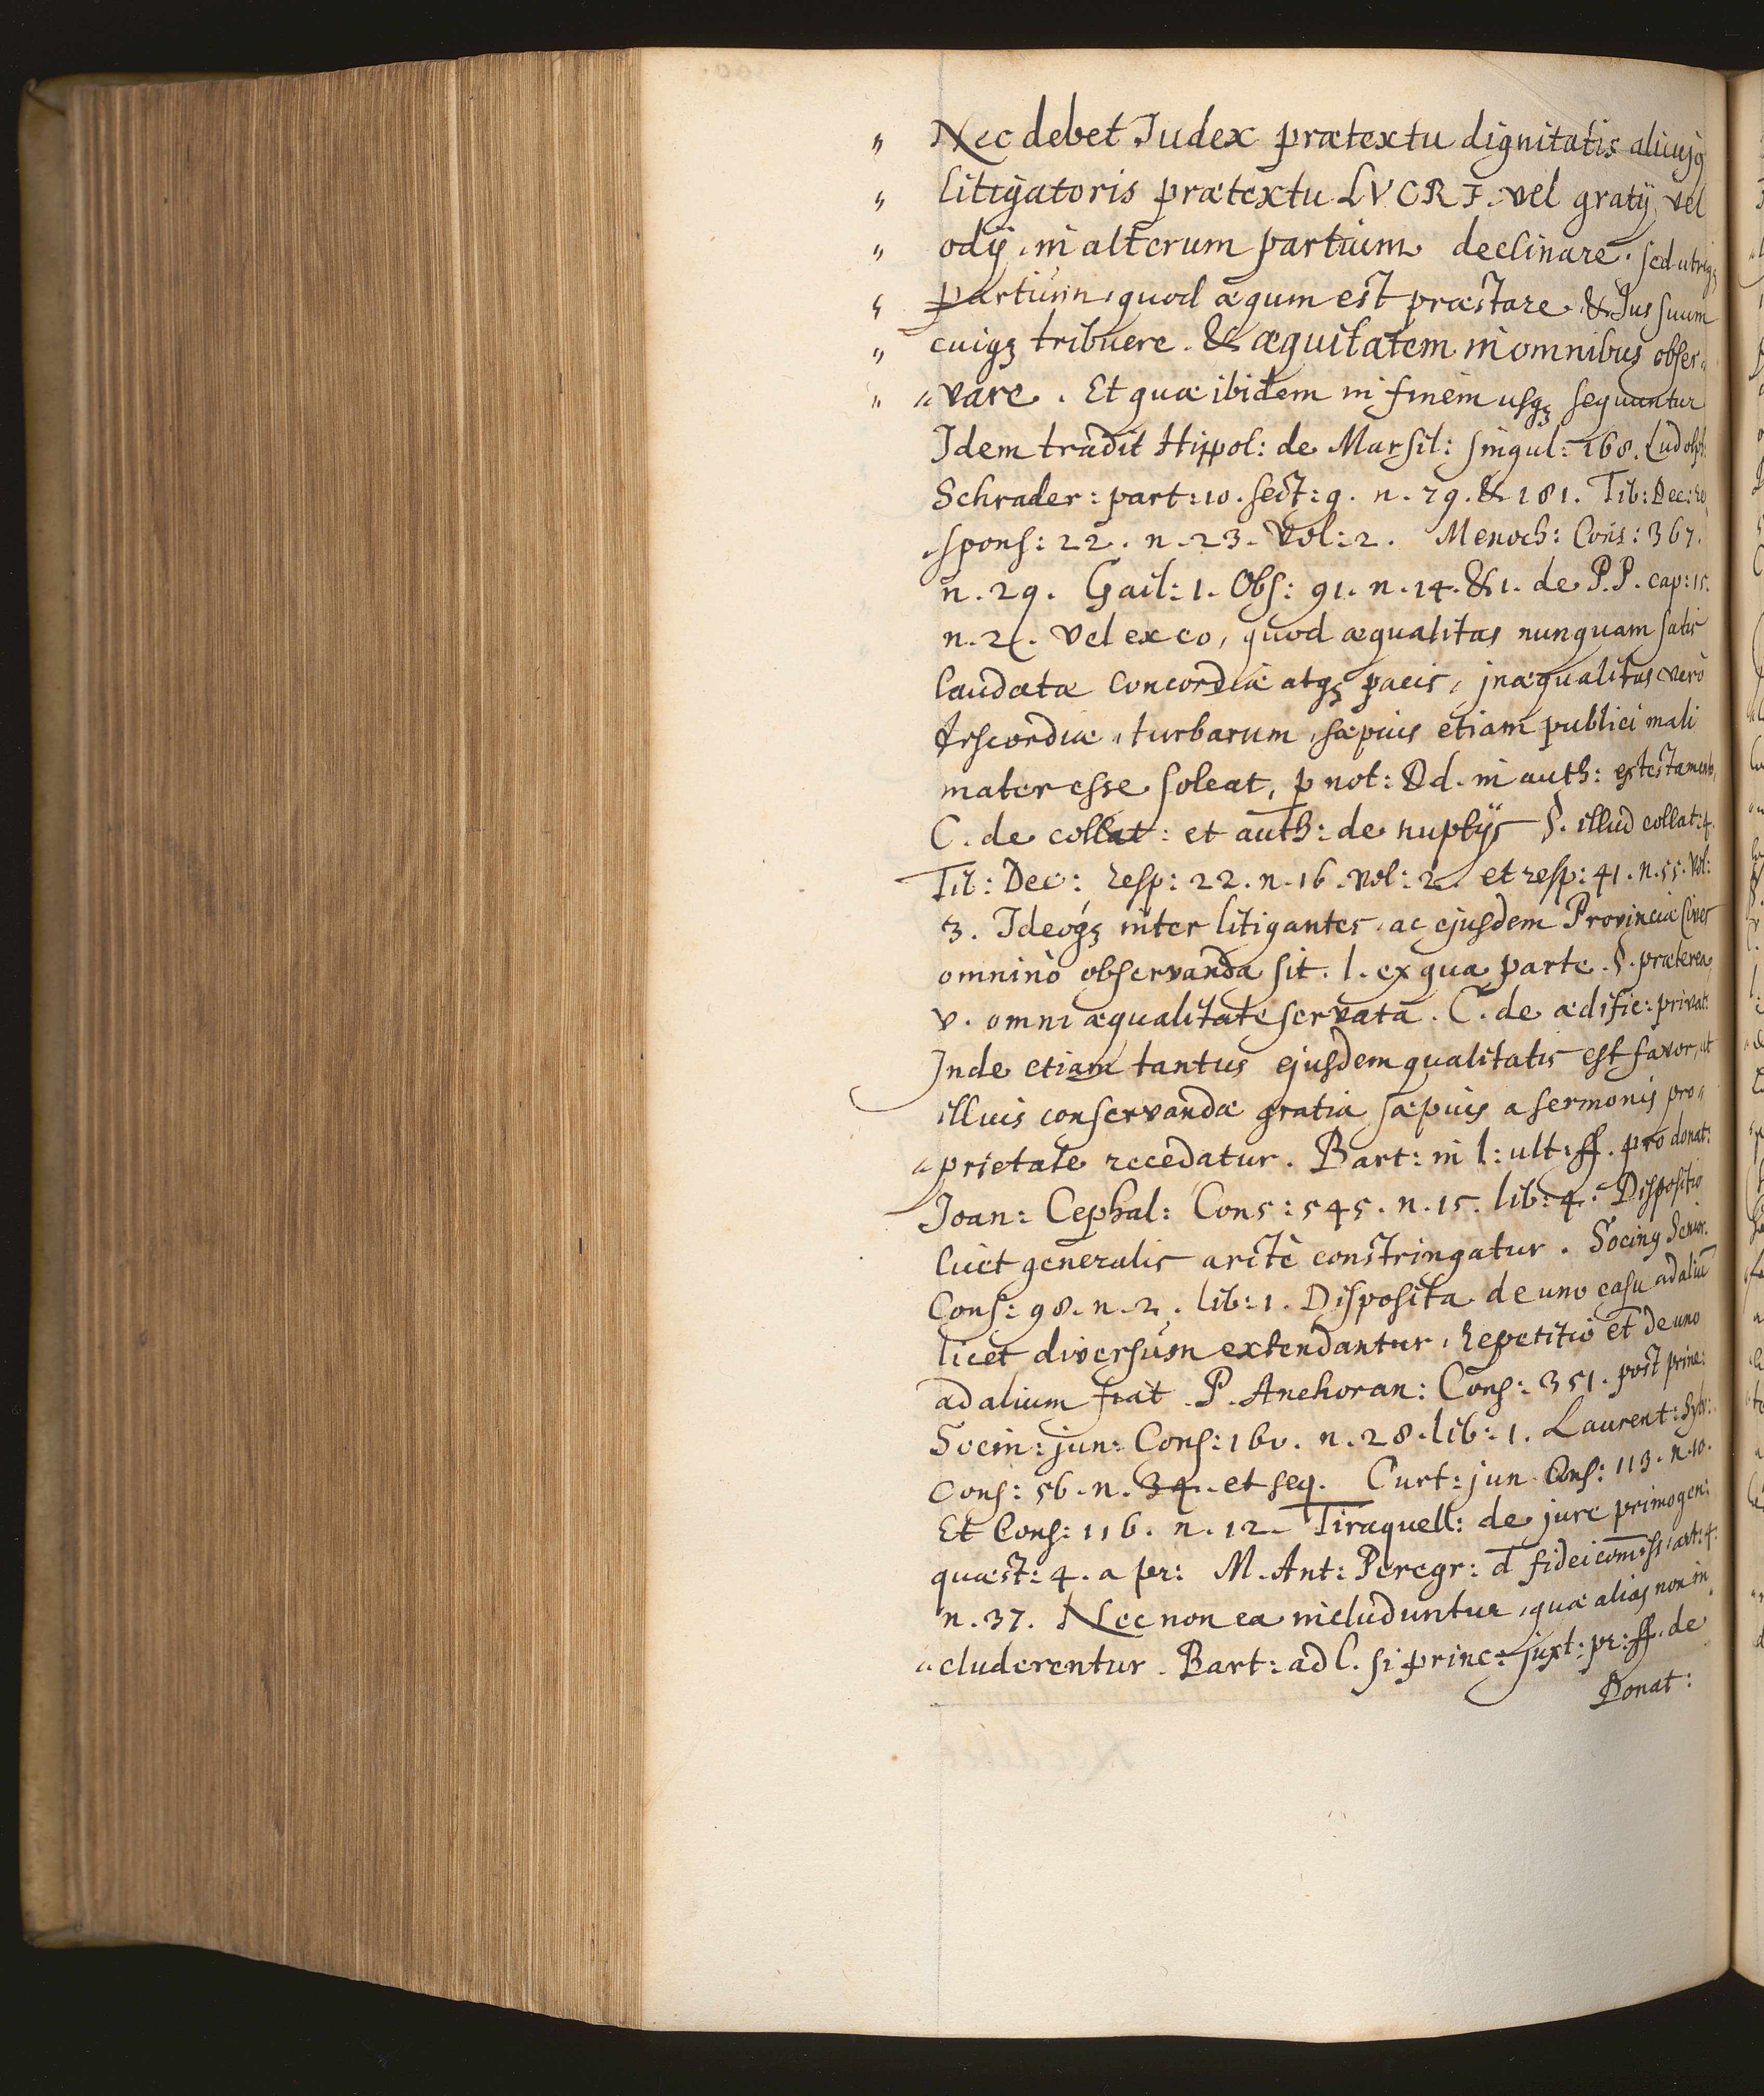 " Nec debet Judex prætextu dignitatis alicujꝫ
" litigatoris prætextu LVCRI. vel gratij, vel
" odij, in alterum partium declinare. sed utriqꝫ
" partium, quod æqum est præstare & Jus suum
" cuiqꝫ tribuere. & æquitatem in omnibus obser„
" „vare. Et quæ ibidem in finem usqꝫ sequuntur
Idem tradit Hippol: de Marsil: singul: 168. Ludolph:
Schrader: part: 10. sect: 9. n. 79. & 181. Tib: Dec: re
spons: 22. n. 23. Vol: 2. Menoch: Cons: 367.
n. 29. Gail: 1. Obs: 91. n. 14. & 1. de P. P. cap: 15.
n. 2. Vel ex eo, quod æqualitas nunquam satis
laudata concordiæ atqꝫ pacis, jnæqualitas verò
discordiæ, turbarum, sæpius etiam publici mali
mater esse soleat, p not: Dd. in auth: ex testamento,
C. de collat: et auth: de nuptijs §. illud collat: 4.
Tib: Dec: resp: 22. n. 16. vol: 2. et resp: 41. n. 55. vol:
3. Ideoqꝫ inter litigantes, ac ejusdem Provinciæ Cives
omninò observanda sit. l. ex qua parte. §. præterea
v. omni æqualitate servata. C. de ædific: privat:
Jnde etiam tantus ejusdem qualitatis est favor, ut
illius conservandæ gratia sæpius a sermonis pro„
„prietate recedatur. Bart: in l: ult: ff. pro donat:
Joan: Cephal: Cons: 545. n. 15. lib: 4. Dispositio
licet generalis arctè constringatur. Socinꝫ Senior.
Cons: 98. n. 2. lib: 1. Disposita de uno casu ad aliū
licet diversum extendantur, Repetitio et de uno
ad alium fiat. P. Anchoran: Cons: 351. post princ:
Socin: jun: Cons: 160. n. 28. lib: 1. Laurent: Sylv:
Cons: 56. n. 34. et seq. Curt: jun. Cons: 113. n. 10.
Et Cons: 116. n. 12. Tiraquell: de jure primogen:
quæst: 4. a pr: M. Ant: Peregr: d fideicom̄iss: art: 4.
n. 37. Nec non ea includuntur, quæ alias non in
„cluderentur. Bart: ad l. si princ: juxt: pr: ff. de
Donat: